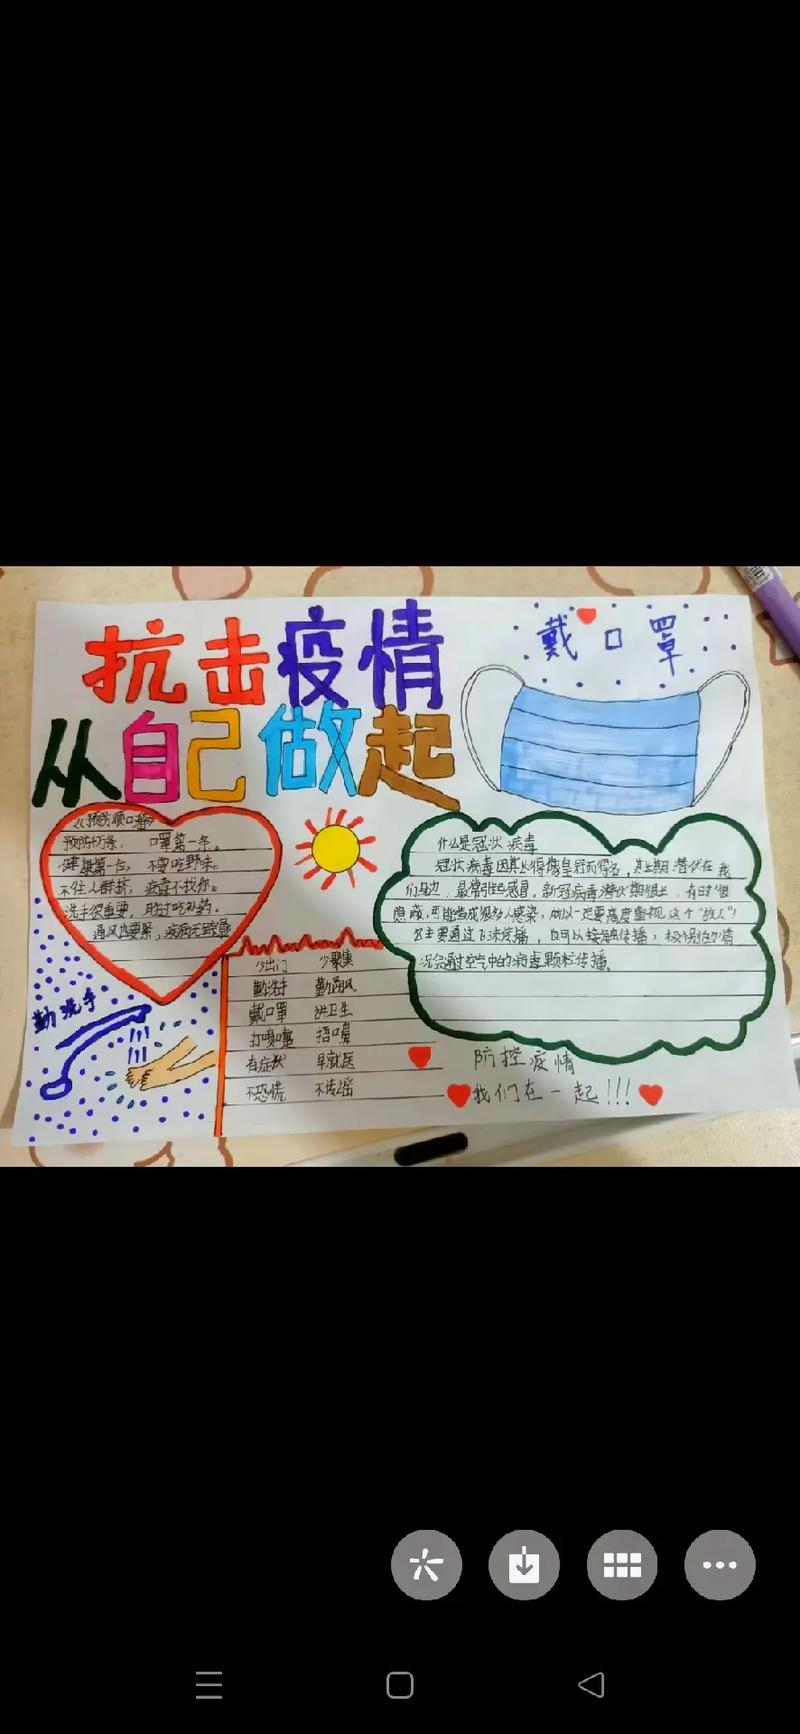 抗击疫情
从自己做起
戴口罩
《预防顺口溜》
预防万条， 口罩第一条。
健康第一位， 不要吃野味。
不往人群挤， 病毒不找你。
洗手很重要，
通风也要累，
勤洗手
少出门 少聚集
勤洗手 勤通风
戴口罩 讲卫生
打喷嚏 捂口鼻
有症状 早就医
不恐慌 不传谣
什么是冠状病毒
冠状病毒因其长得像皇冠而得名，其长期潜伏在我
们身边，最常引起感冒，新冠病毒潜伏期很长，有时很
隐蔽，可能造成很多人感染，所以一定要高度重视这个“敌人”！
它主要通过飞沫传播，也可以接触传播，极个别的情
况会通过空气中的病毒颗粒传播。
防控疫情
我们在一起!!!